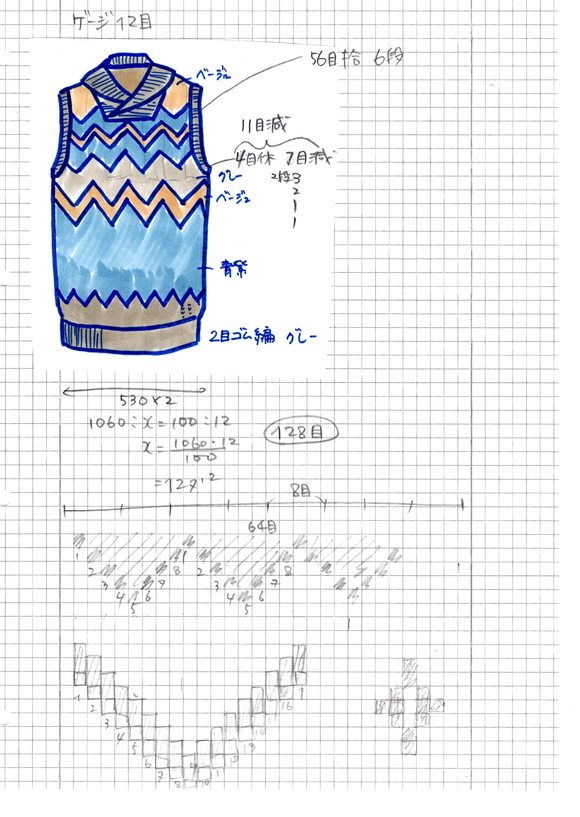 ゲージ12目
56目拾 6段
ベージュ
11目減
4目休 7目減
グレー
2段3
2
ベージュ
1
1
青紫
2目ゴム編 グレー
530×2
1060:x=100:12
128目
x=1060・12
100
=127.2
8目
64目
1 2 3 4 5 6 7 8 1 2 3 4 5 6 7 8
1 2 3 4 5 6 7 8 9 10
16 1